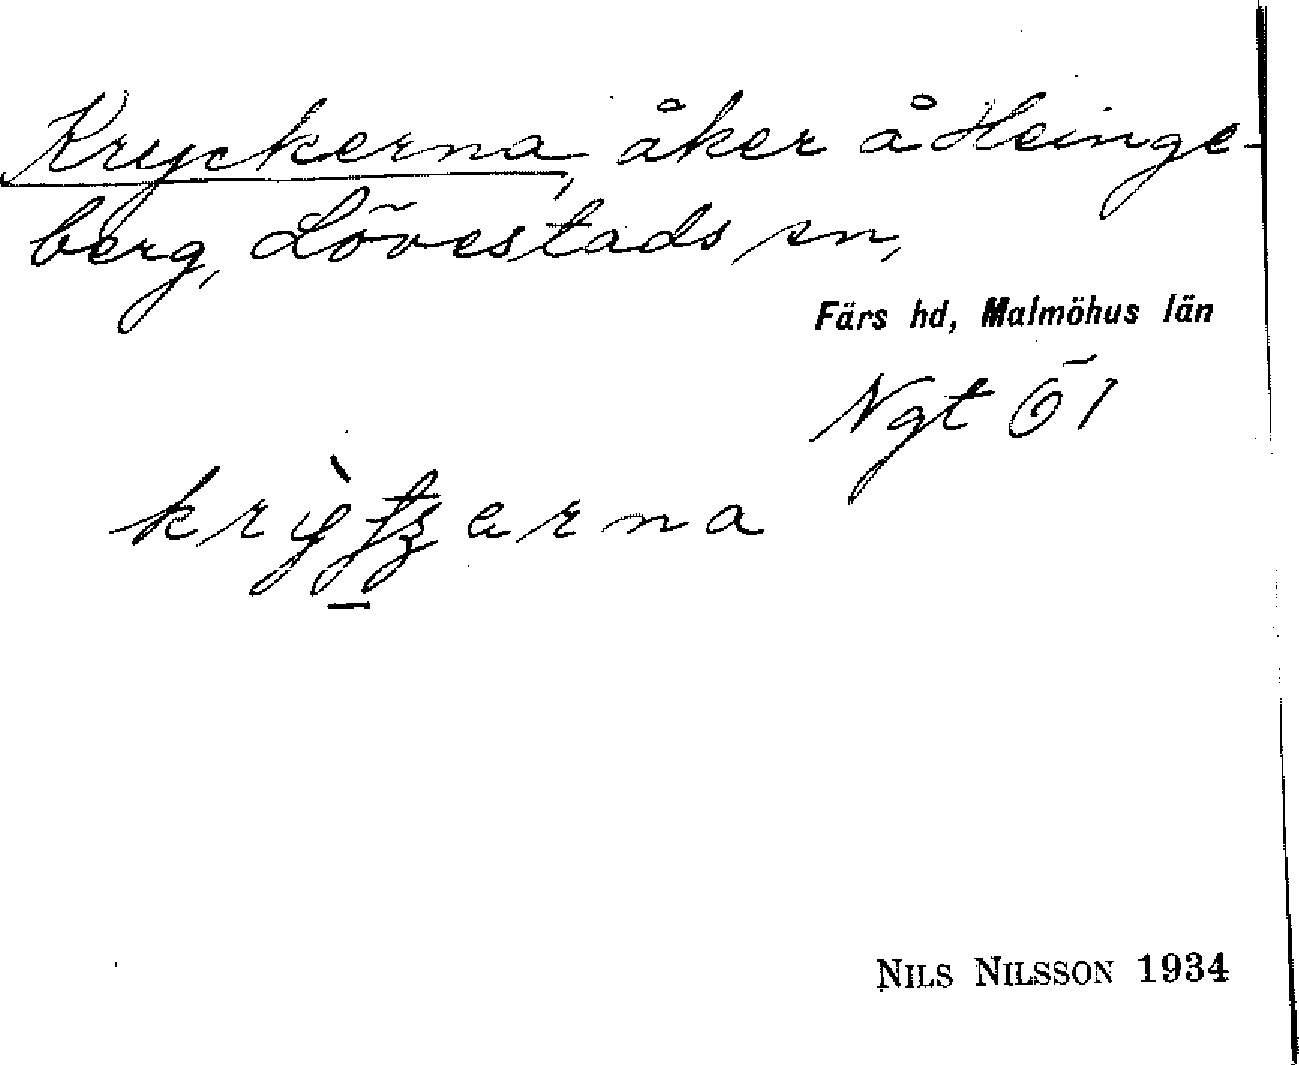 Kryckerna, åker å Heinge-
berg, Lövestads sn,
Färs hd, Malmöhus län
Ngt Öl
NILS NILSSON 1934